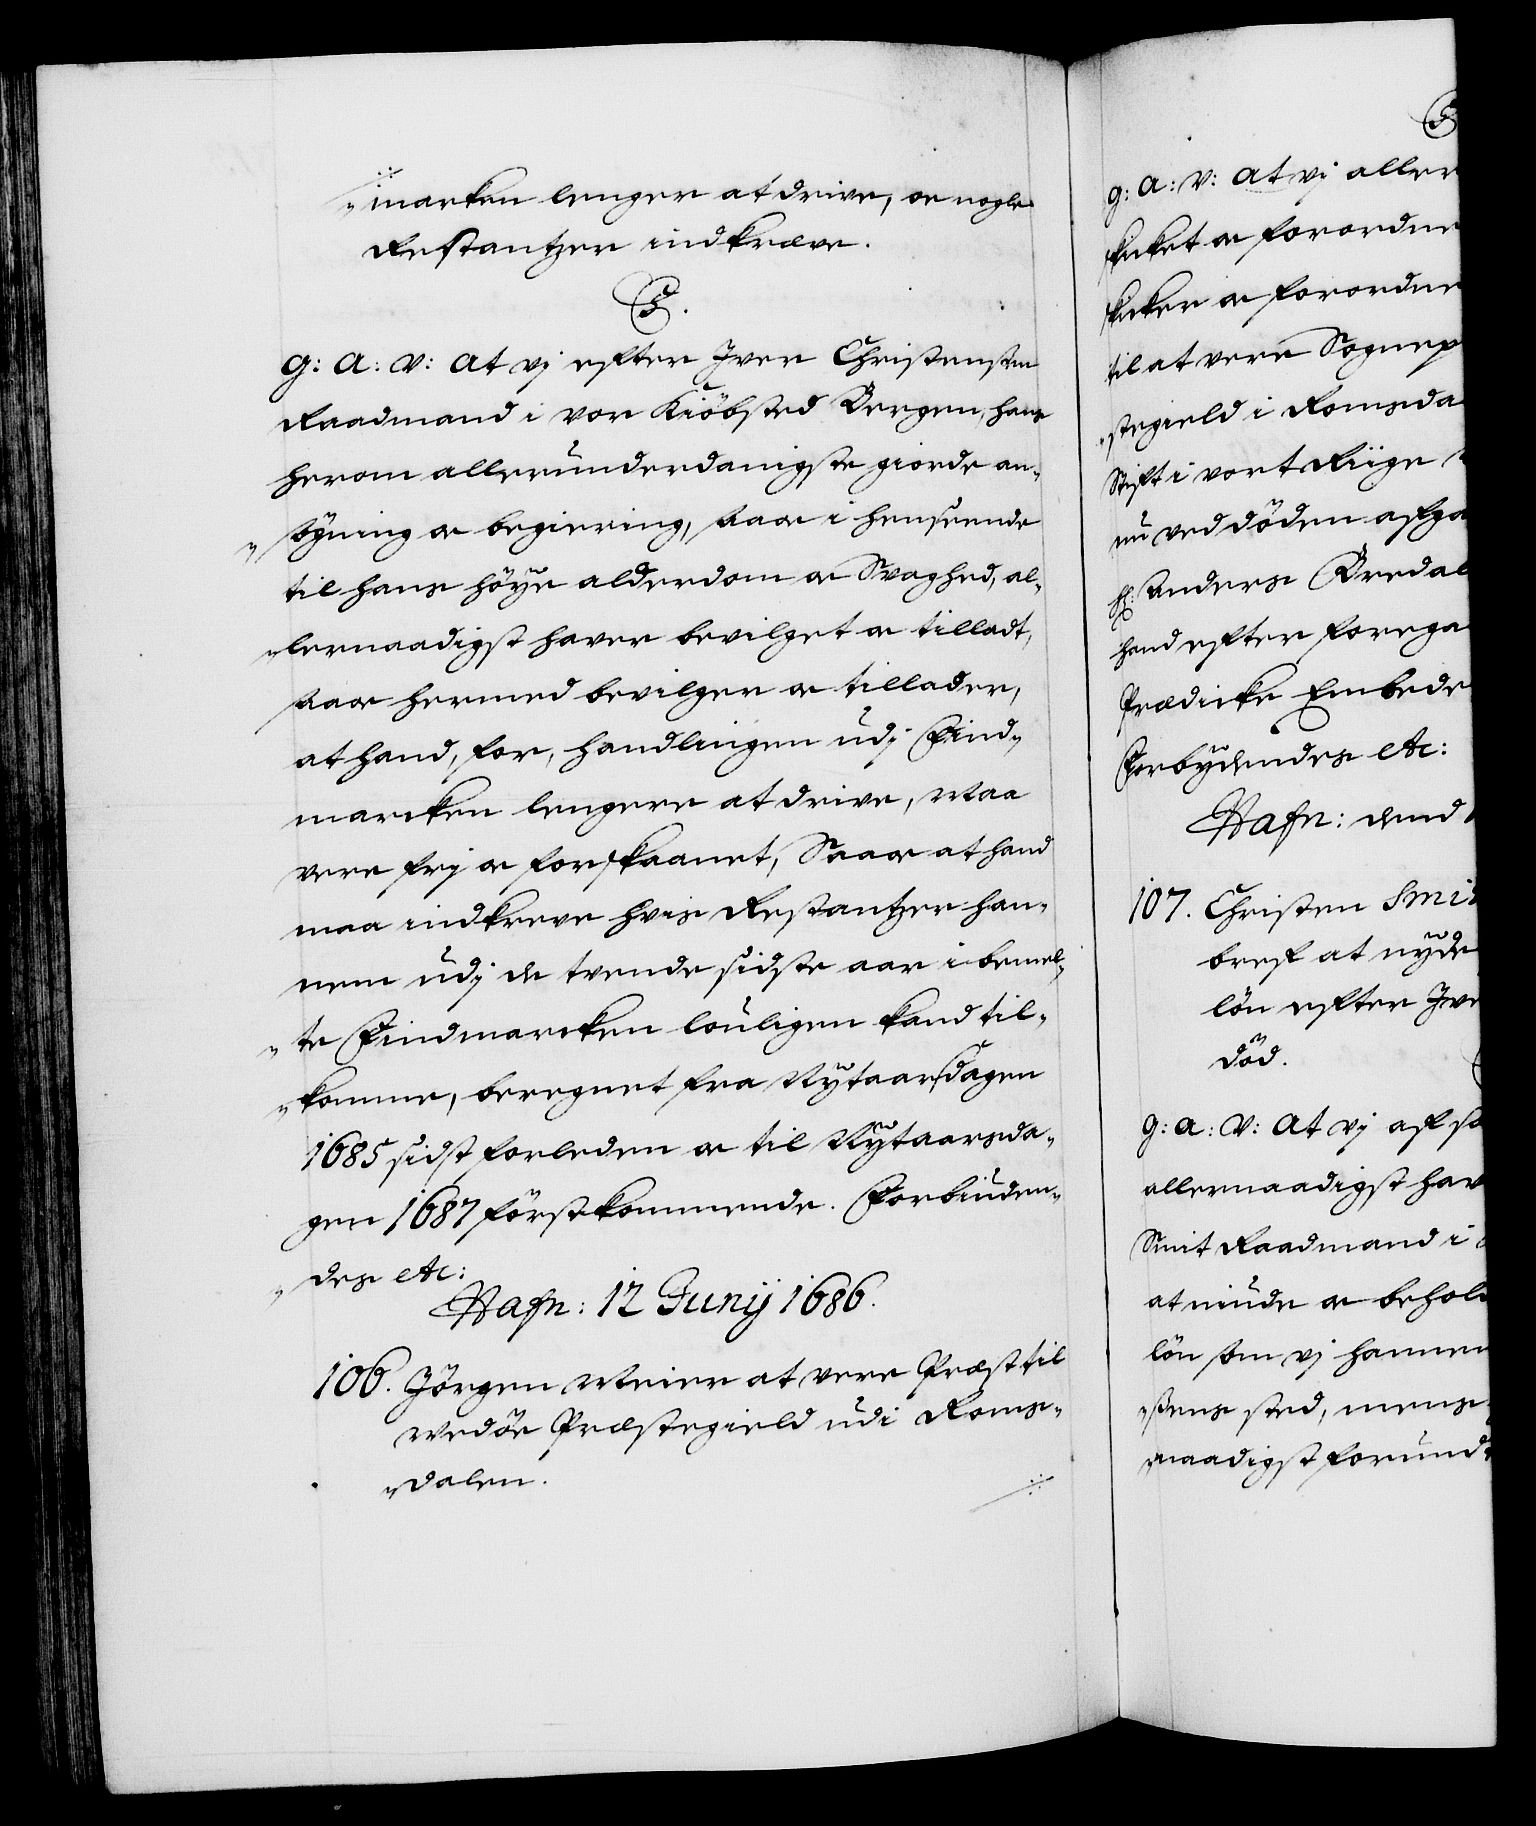 "marken lenger at drive, oc nogle
Restantzer indkræve.
C5.
G: A: V: At vj efter Iver Christensen
Raadmand i vor Kiöbsted Bergen, hans
herom allerunderdanigste giorde an„
„sögning oc begiering, saa oc i henseende
til hans höye alderdom oc Svaghed, al„
„lernaadigst haver bevilget oc tilladt,
saa oc hermed bevilger oc tillader,
at hand, for, handlingen udj Find„
marcken lengere at drive, Maa
vere frj oc forskaanet, Saa oc at hand
maa indkreve hvis Restantzer han„
nem udj de tvende sidste aar i bemel„
„te Findmarcken louligen kand til„
„komme, beregnet fra Nytaarsdagen
1685 sidst forleden oc til Nytaarsda„
gen 1687 förstkommende. Forbiuden„
„des etc:
Hafn: 12 Junij 1686.
106. Jörgen Meier at vere Præst til
Wedöe Præstegield udi Roms„
„dalen.
G: A: V: At vj aller
skicket oc forordne
skicker oc forordne
til at vere Sognep
„stegield i Romsda
Stift i vort Riige
nu ved döden afga
Hr: Anders Bredal
hand efter forega
Prædicke Embede
Forbydendes etc:
Hafn: dend
107. Christen Smi
bref at nyde
lön efter Ive
död.
G: A: V: At vj af s
allernaadigst hav
Smit Raadmand i
at niude oc behol
lön som vj hannem
„sens sted, mens
naadigst forund